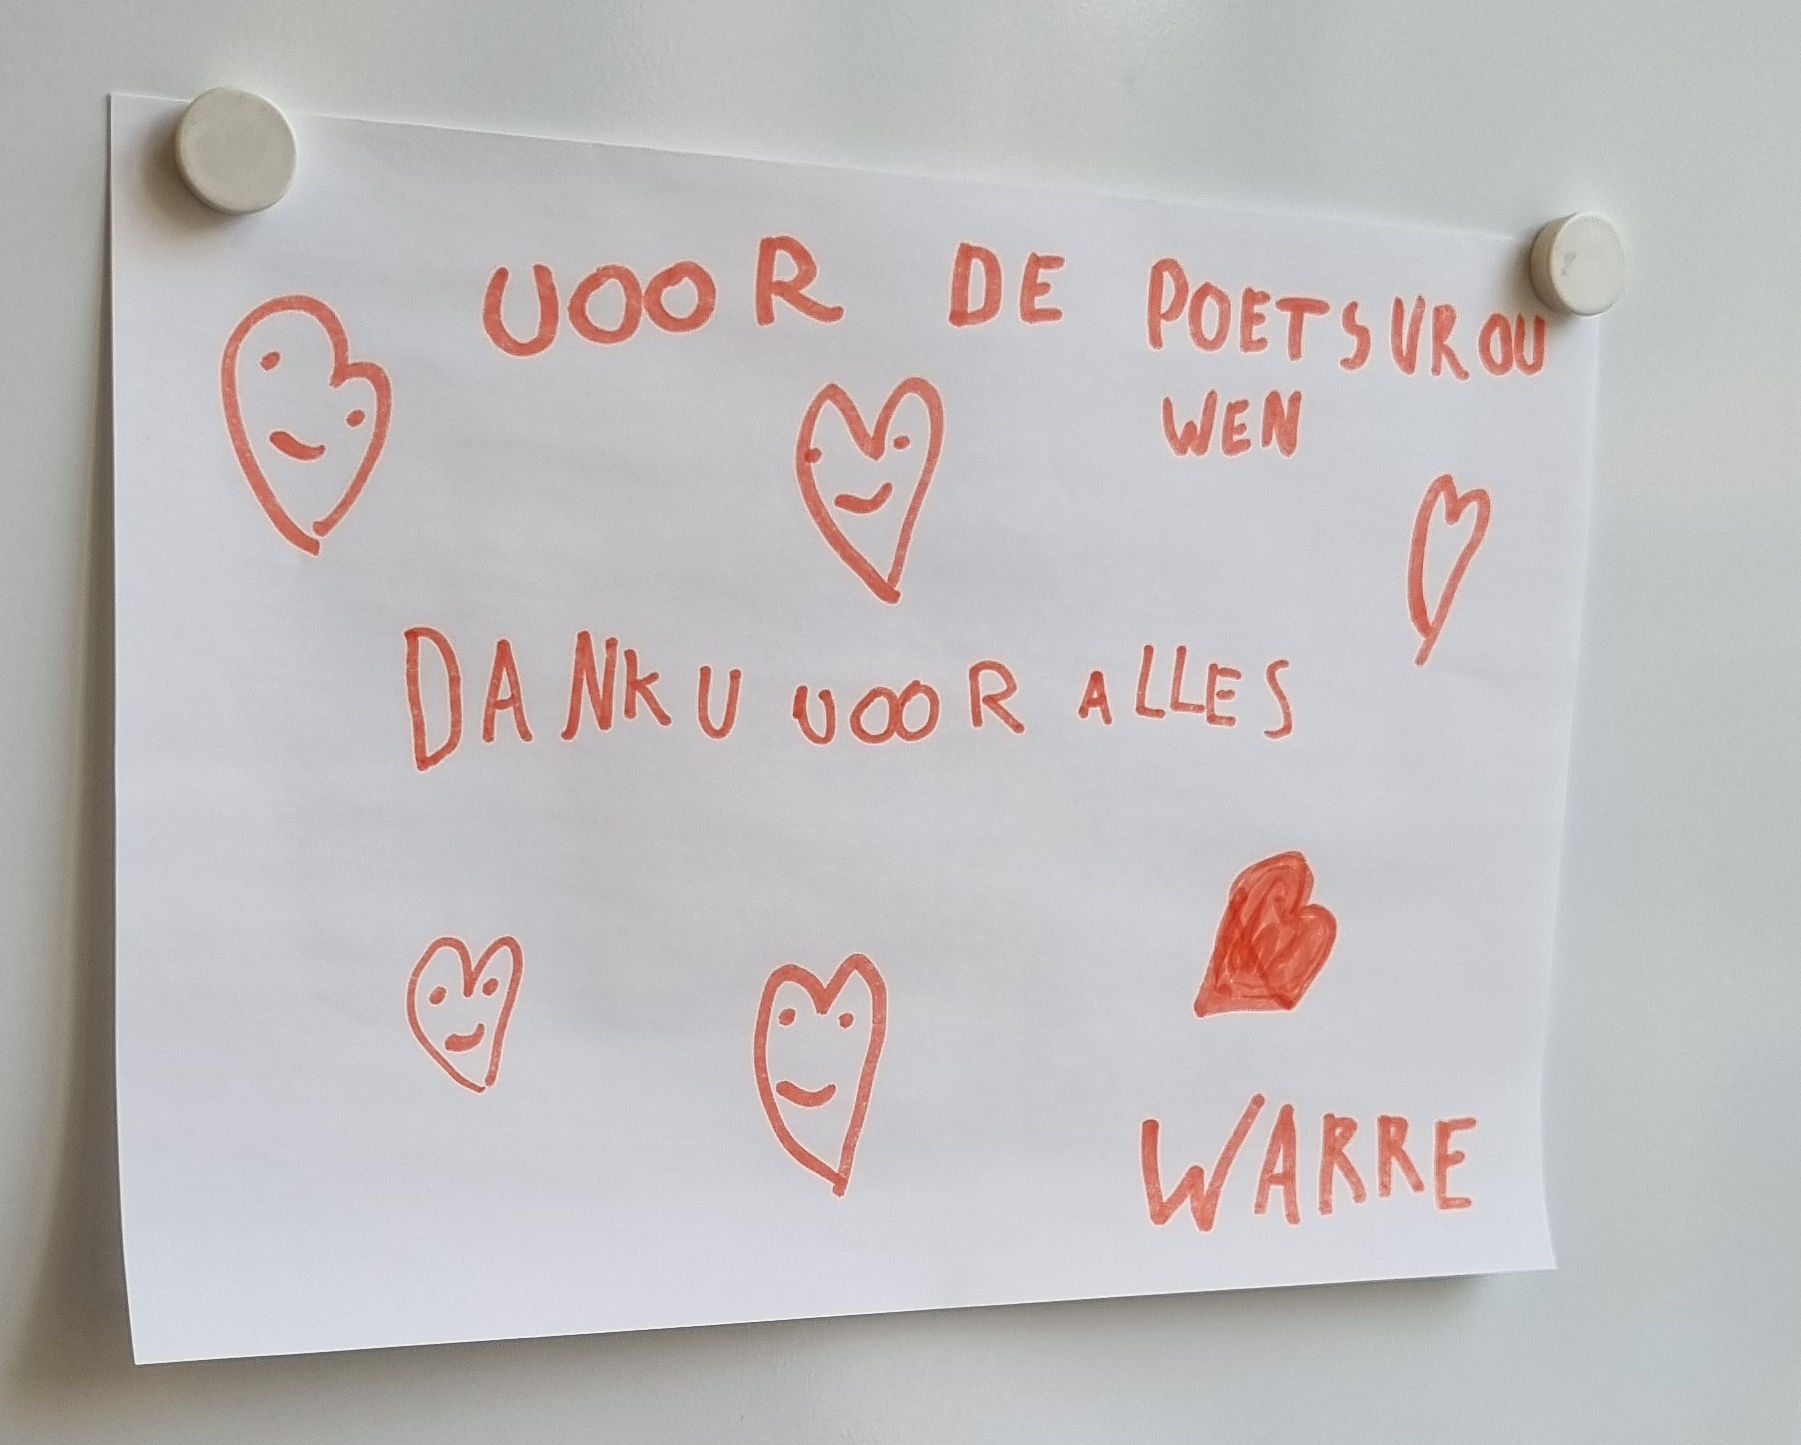 VOOR DE POETSVROU
WEN
DANKU VOOR ALLES
WARRE